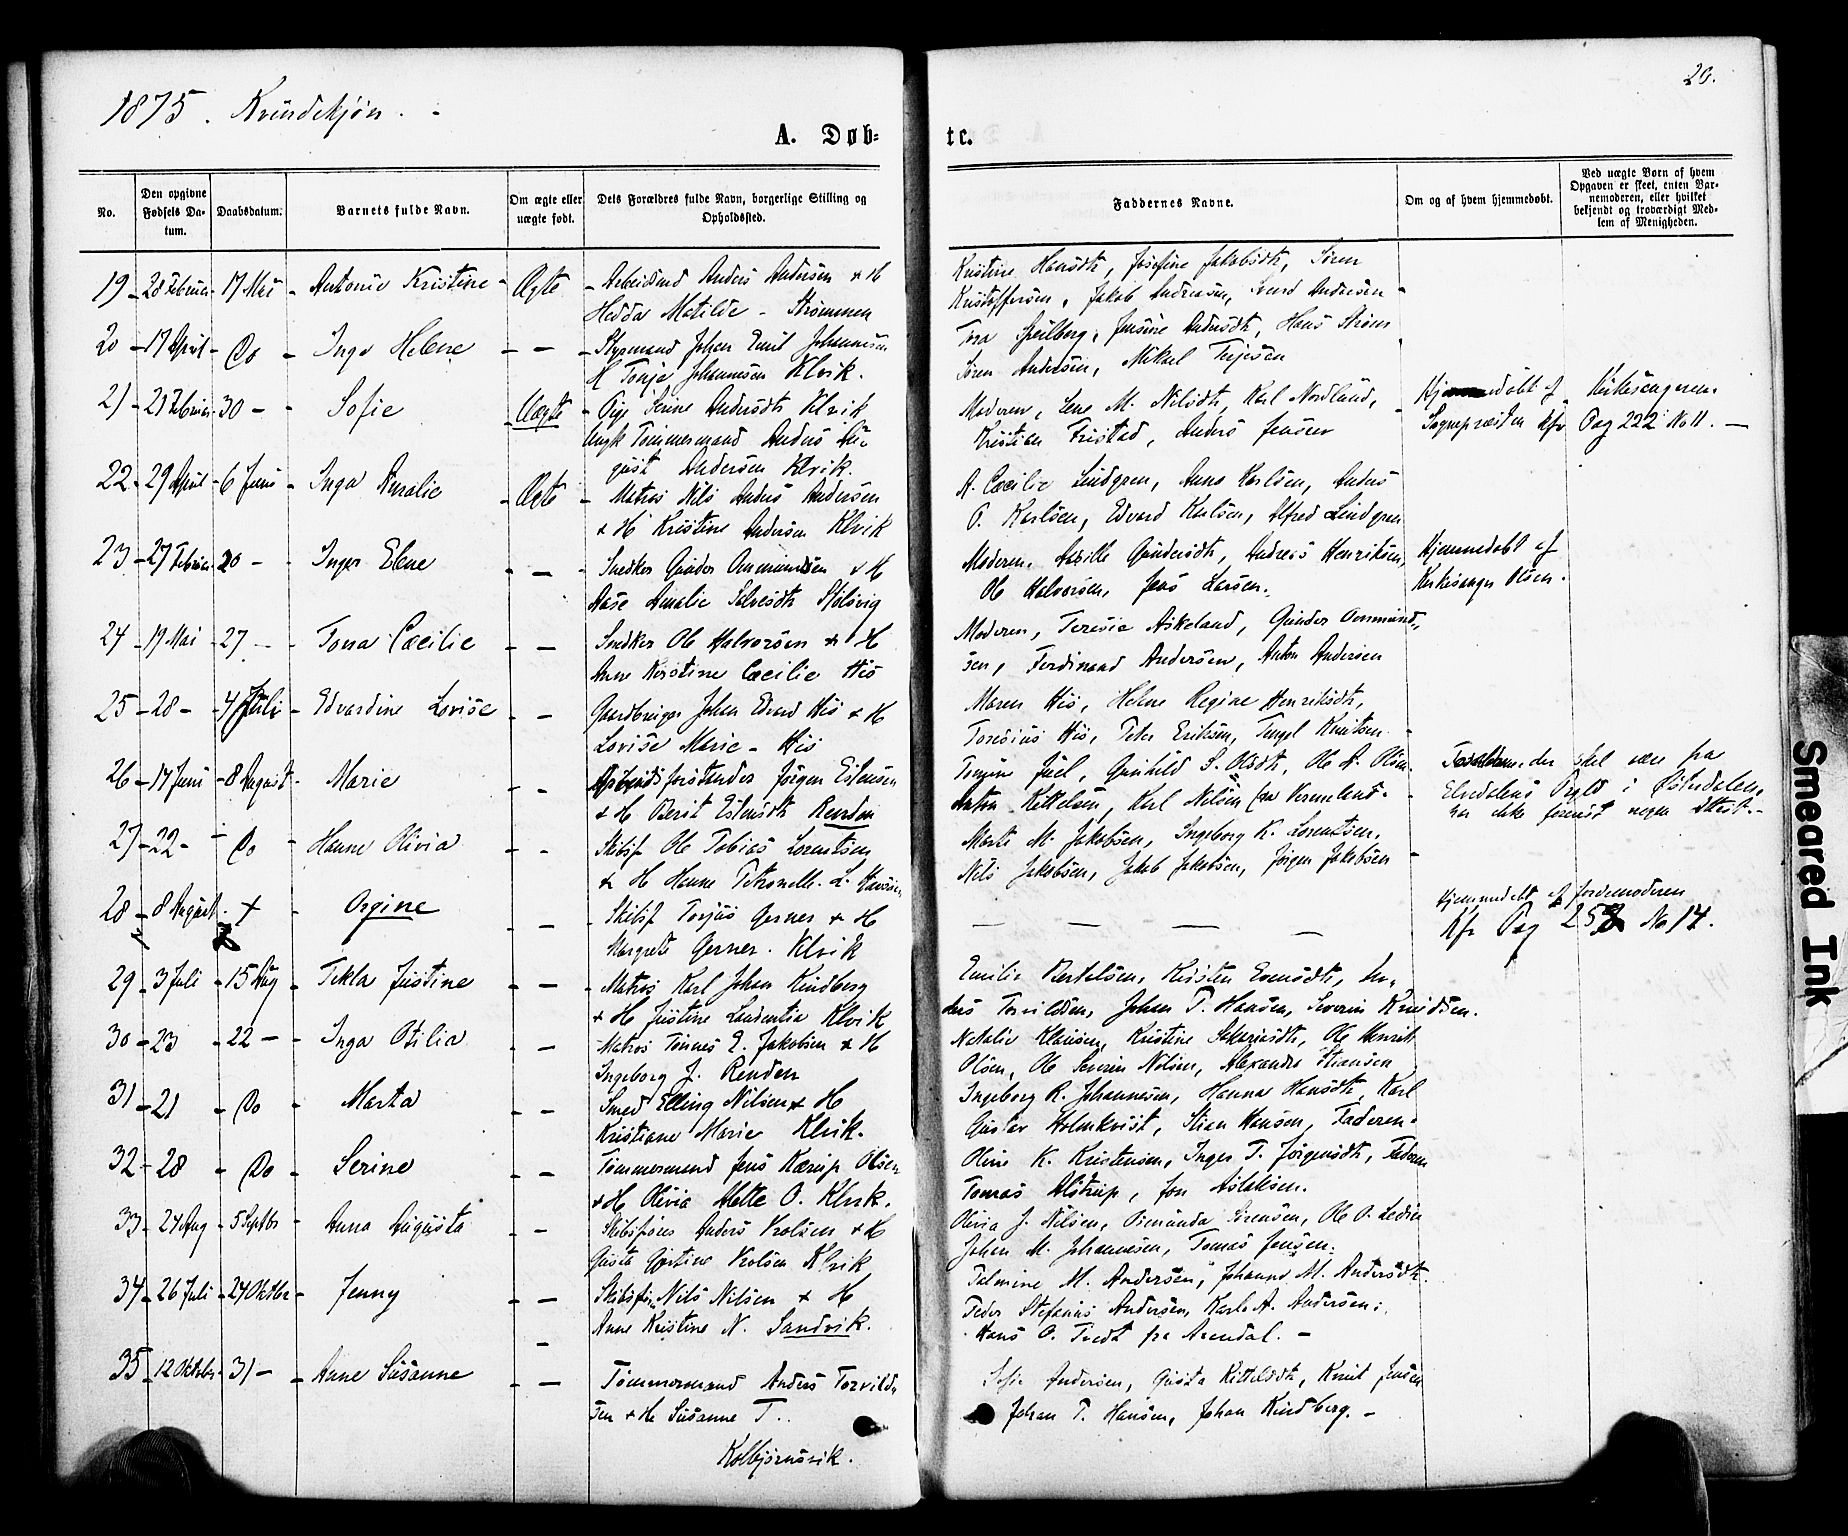 20.
1875. Kvindekjøn.
A. Døb-
te.
No.
Den opgivne Fødsels Da-tum.
Daabsdatum.
Barnets fulde Navn.
Om ægte eller uægte født.
Dets Forældres fulde Navn, borgerlige Stilling og Opholdssted.
Faddernes Navne.
Om og af hvem hjemmedøbt.
Ved uægte Børn af hvem Opgaven er skeet, enten Bar-nemoderen, eller hvilket bekjendt og troværdigt Med-lem af Menigheden.
19 - 28 Februar - 17 Mai - Antonie Kristine - Ægte - Arbeidsmd Anders Andersen & H
Hedda Matilde - Strømmen
Kristine Hansdtr, Josefine Jakobsdtr, Sören
Kristoffersen, Jakob Andreasen, Svend Andersen
20 - 17 April - Do - Inga Helene - — - Styrmand Johan Emil Johannesen
H Tonje Johannesen Klvik.
Tora Speilberg, Jensine Andersdtr, Hans Strøm
Sören Andersen, Mikael Terjesen
21 - 21 Februar - 30 - - Sofie - Uægte - Pige Serine Andersdtr Klvik
Ungk Tömmermand Anders Au-
gust Andersen Klvik.
Moderen, Lene M. Nilsdtr, Karl Nordland,
Kristian Fristad, Anders Jensen
Hjemmedöbt af Kirkesangeren.
Sognepræsten Kfr Pag 222 No 11. —
22 - 29 April - 6 Juni - Inga Amalie - Ægte - Matros Nils Anders Andersen
& H Kristine Andersen Klvik
A. Cæcilie Lindgren, Anna Karlsen, Anders
O. Karlsen, Edvard Karlsen, Alfred Lindgren
23 - 27 Februar - 20 - - Inger Elene - — - Snedker Gunder Ommundsen & H
Aase Amalie Salvesdtr Stølsvig
Moderen, Gundersdtr, Andreas Henriksen,
Ole Halvorsen, Jens Larsen.
Hjemmedøbt af
Kirkesanger Olsen.
24 - 17 Mai - 27 - - Tora Cæcilie - — Snedker Ole Halvorsen & H
Anne Kirstine Cæcilie His
Moderen, Teresia Askeland, Gunder Ommund-
sen, Ferdinand Andersen, Anton Andersen
25 - 28 - - 4 Juli - Edvardine Lovise - — Gaardbruger Johan Edvard His & H
Lovise Marie - His
Maren His, Helene Regine Henriksdtr,
Toresius His, Peter Eriksen, Tengel Knutsen.
26 - 17 Juni - 8 August - Marie - - Arbeidsforstander Jørgen Estensen
& H Berit Estensdtr Renden
Tomine Juel, Gunhild S. Olsdtr, Ole A. Olsen
Anton Kittelsen, Karl Nilsen fra Vermeland.
Forældrene, der skal være fra
Elvedalens Prgld i Østerdalen,
har ikke forevist nogen Attest.-
27 - 22 - - Do - Hanne Olivia - - Skibsf Ole Tobias Lorentsen
& H Hanne Petronelle. L. Hansen
Marte M. Jakobsen, Ingeborg K. Lorentsen,
Nils Jakobsen, Jakob Jakobsen, Jørgen Jakobsen -
28 - 8 August - + - Orgine - — - Skibsf Torjus Gerner & H
Margrete Gerner. Klvik
— — — —
Hjemmedöbt af Jordemoderen
Kfr Pag 258 No 17.
29 - 3 Juli - 15 Aug - Tekla Justine - — - Matros Karl Johan Kindberg
& H Justine Laurentia Klvik
Emilie Bertelsen, Kirsten Evensdtr, An-
ders Torvildsen, Johan T. Hansen, Severin Knudsen.
30 - 23 - 22 — - Inga Otilia - — Matros Tönnes E. Jakobsen & H
Ingeborg J. Renden
Natalie Klausen, Kristine Sakariasdtr, Ole Henrik
Olsen, Ole Severin Nilsen, Alexander Stiansen
31 - 21 - Do - Marta - — Smed Elling Nilsen & H
Kristiane Marie Klvik.
Ingeborg R. Johannesen, Hanna Hansdtr, Karl
Gustav Holmkvist, Stian Hansen, Faderen.
32 - 28 - Do - Serine - — Tömmermand Jens Kærup Olsen
& H Olivia Mette O. Klvik.
Oline K. Kristensen, Inger T. Jörgensdtr, Faderen
Tomas Alstrup, Jon Aslaksen.
33 - 24 Aug - 5 Septbr - Anna Augusta - - Skibsförer Anders Vrolsen & H
Vrolsen Klvik
Olivia J. Nilsen, Osmunda Sörensen, Ole O. Ledin
Johan M. Johannesen, Tomas Jensen.
34 - 26 Juli - 24 Oktbr - Jenny - — Skibsför. Nils Nilsen & H
Anne Kristine N. Sandvik.
Talmine M. Andersen, Johanne M. Andersdtr.
Peder Stefanus Andersen, Karl A. Andersen,
Hans O. Tvedt fra Arendal. -
35 - 12 Oktober - 31 — - Anne Susanne - — Tömmermand Anders Torvild-
sen & H Susanne T..
Kolbjørnsvik.
Sofie Andersen, Gusta Kittelsdtr, Knut Jensen
Johan T. Hansen, Johan Kindberg. -
Smeared Ink